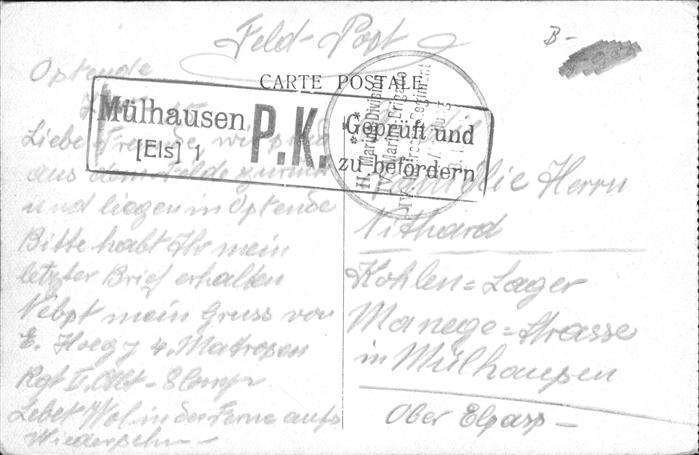 Feld-Post
B-
CARTE POSTALE
Mülhausen
[Els] 1
P.K.
Geprüft und
zu befördern
II. Marine-Division
IV. Marine-Brigade
Optende
Liebe Freunde, wir sind
aus dem Felde zurück
und liegen in Optende
Bitte habt Ihr mein
letzter Brief erhalten
Nebst mein Gruss von
E. Hoeg 4. Matrosen
Rgt II. Abt - 8 Comp
Lebet Wol in der Ferne aufs
Wiedersehn -
Familie Herrn
Nithard
Kohlen=Lager
Manege=Strasse
in Mülhausen
Ober Elsass -